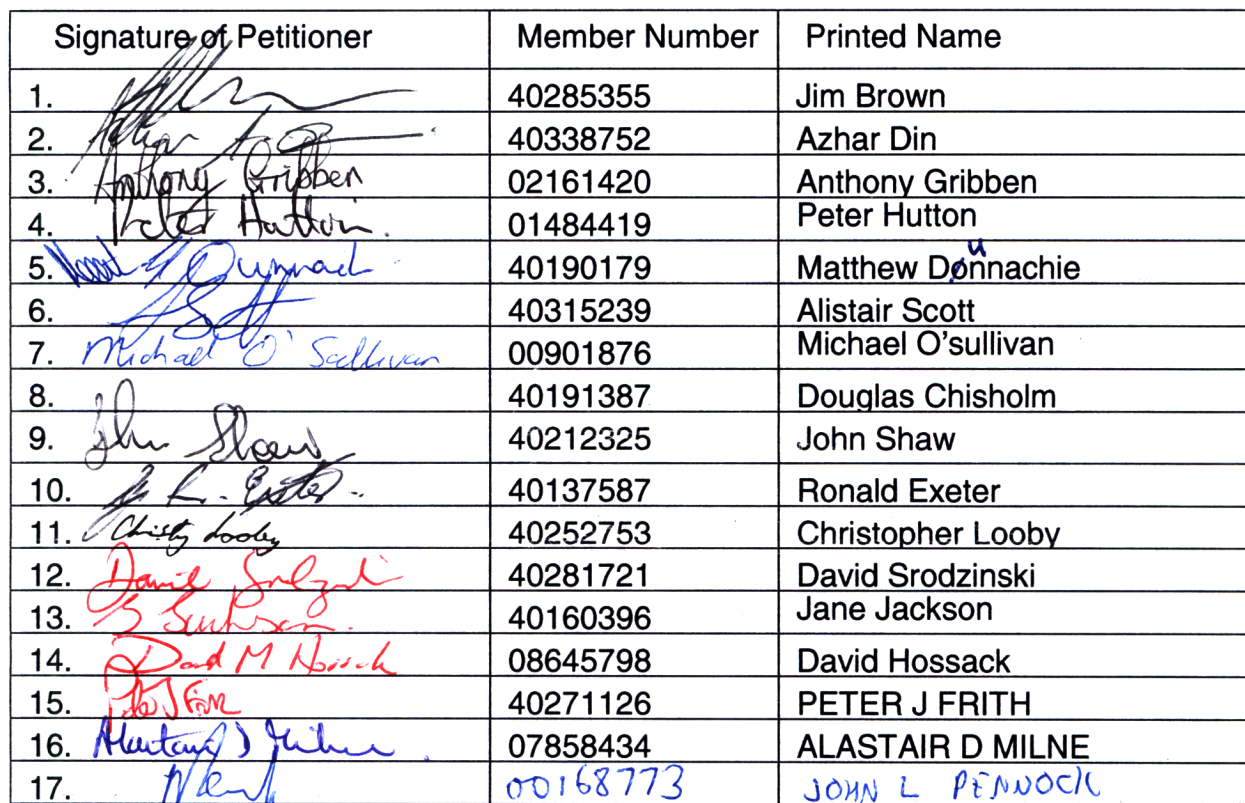 Signature of Petitioner Member Number Printed Name
1. 40285355 Jim Brown
2. Azhar 40338752 Azhar Din
3. Anthony Gribben 02161420 Anthony Gribben
4. Peter Hutton. 01484419 Peter Hutton
5. Dunnachie 40190179 Matthew Dunnachie
6. A Scott 40315239 Alistair Scott
7. Michael O'Sullivan 00901876 Michael O'sullivan
8. 40191387 Douglas Chisholm
9. John Shaw 40212325 John Shaw
10. R. Exeter. 40137587 Ronald Exeter
11. Christy Looby 40252753 Christopher Looby
12. David Srodzinski 40281721 David Srodzinski
13. J Jackson. 40160396 Jane Jackson
14. David M Hossack 08645798 David Hossack
15. Peter J Frith 40271126 PETER J FRITH
16. Alastair D Milne 07858434 ALASTAIR D MILNE
17. 00168773 JOHN L PENNOCK